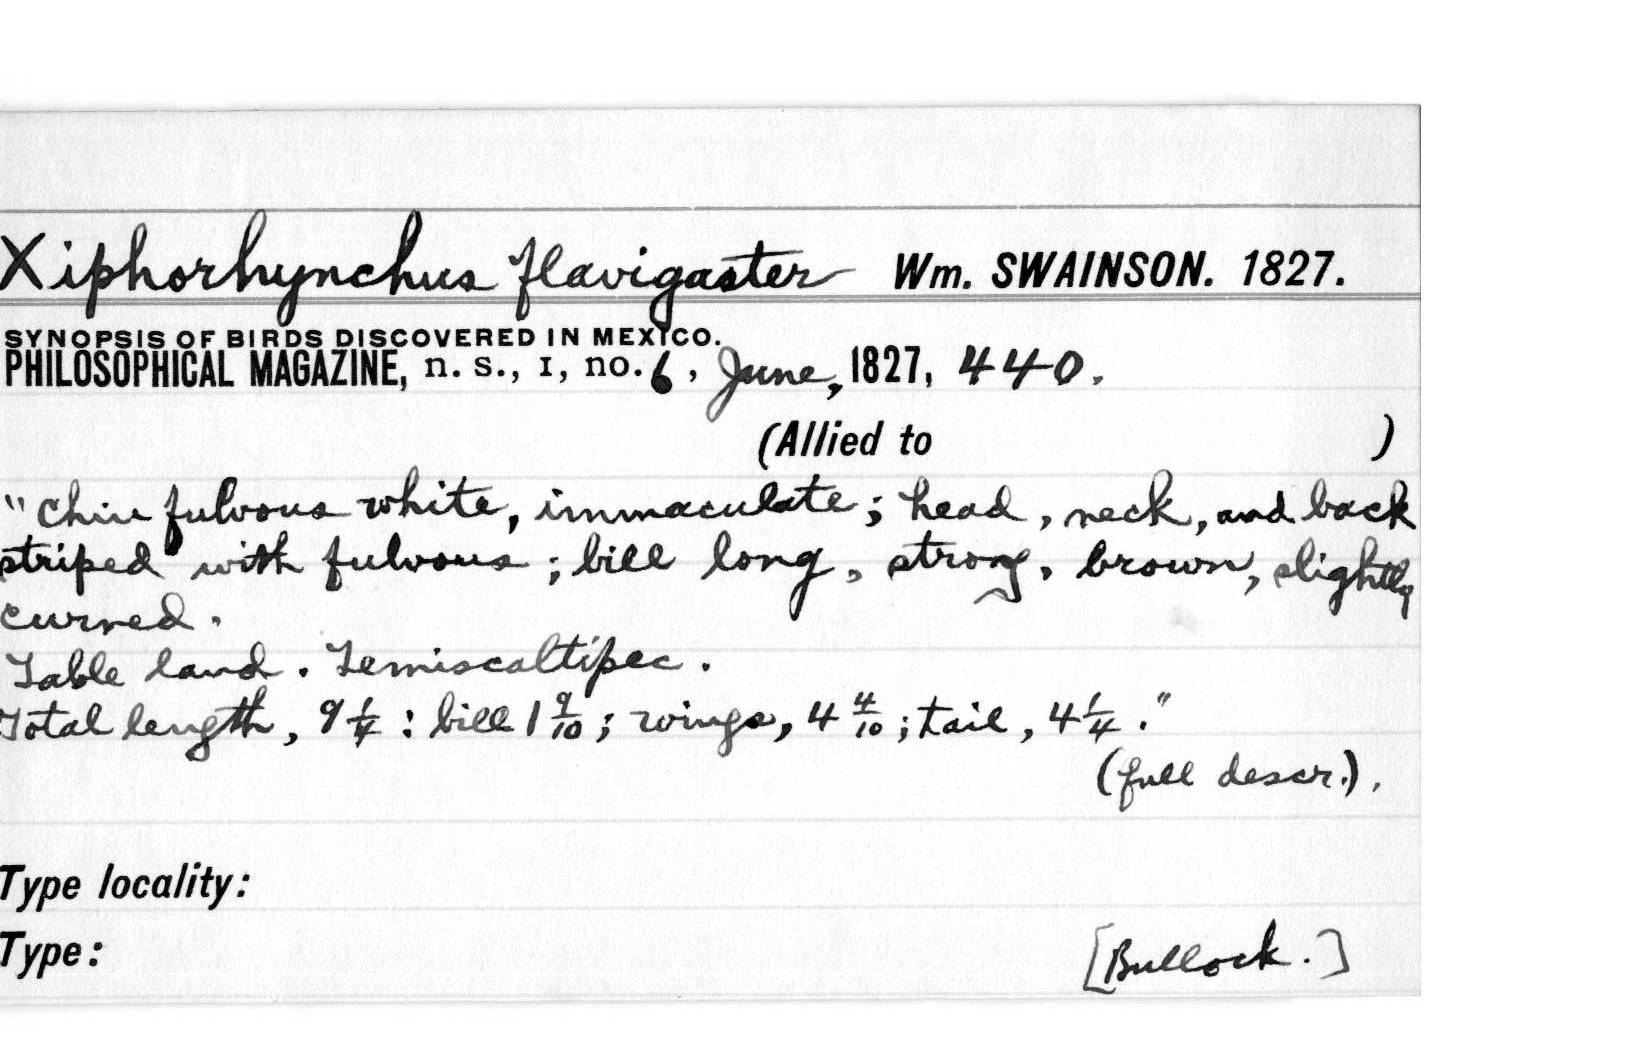 Xiphorhynchus flavigaster Wm. SWAINSON. 1827.
SYNOPSIS OF BIRDS DISCOVERED IN MEXICO.
PHILOSOPHICAL MAGAZINE, n. s., I, no. 6, June, 1827, 440.
(Allied to )
"Chin fulvous white, immaculate; head, neck, and back
striped with fulvous; bill long, strong, brown, slightly
curved.
Table land. Temiscaltipec.
Total length, 9 1/4: bill 1 9/10; wings, 4 4/10; tail, 4 1/4."
(full descr.).
Type locality:
Type: [Bullock.]